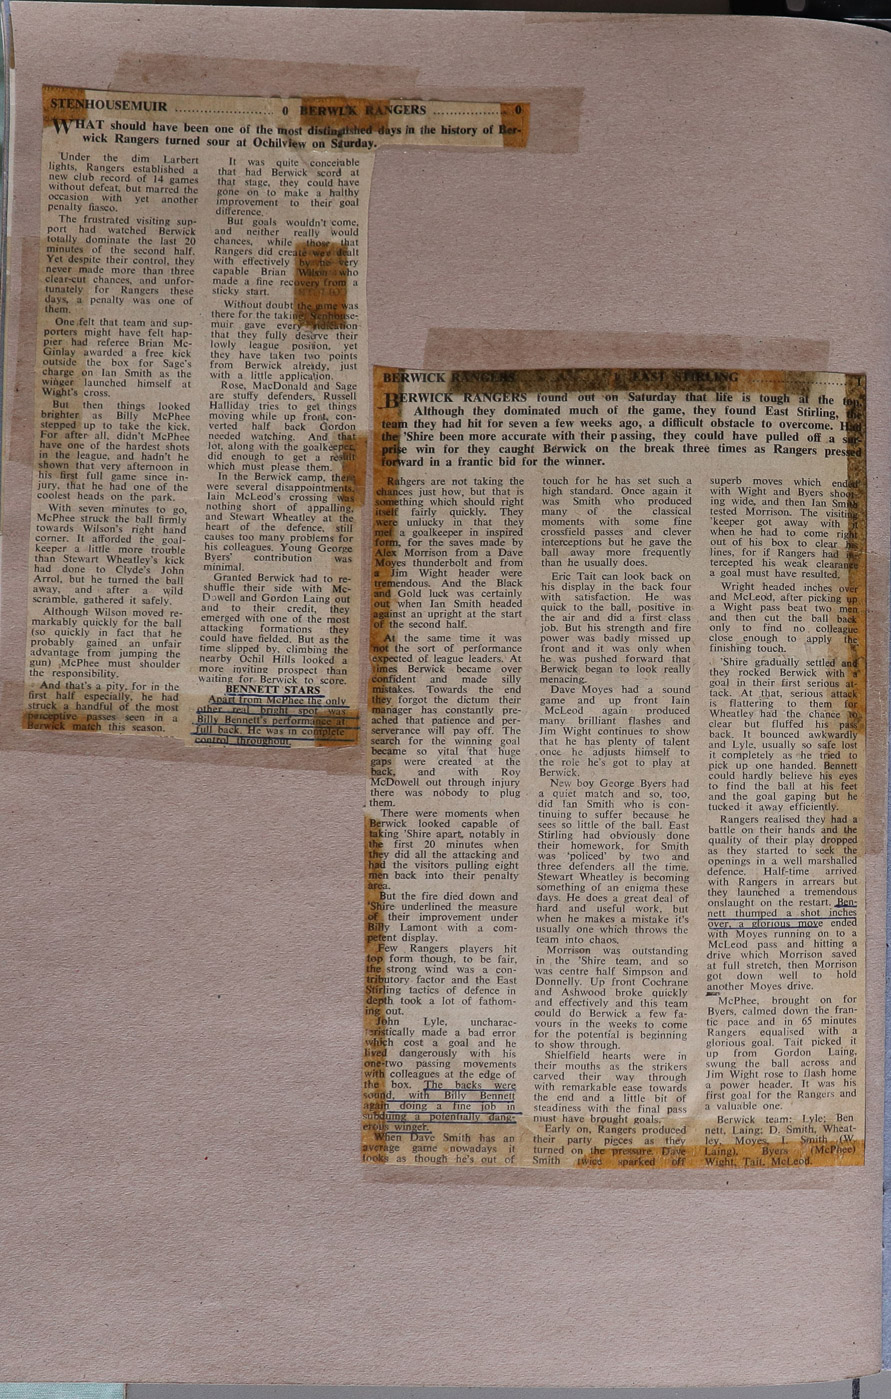 STENHOUSEMUIR .......................... 0 BERWICK RANGERS ...................... 0
WHAT should have been one of the most distinguished days in the history of Ber-
wick Rangers turned sour at Ochilview on Saturday.
Under the dim Larbert
lights, Rangers established a
new club record of 14 games
without defeat, but marred the
occasion with yet another
penalty fiasco.
The frustrated visiting sup-
port had watched Berwick
totally dominate the last 20
minutes of the second half.
Yet despite their control, they
never made more than three
clear-cut chances, and unfor-
tunately for Rangers these
days, a penalty was one of
them.
One felt that team and sup-
porters might have felt hap-
pier had referee Brian Mc-
Ginlay awarded a free kick
outside the box for Sage's
charge on Ian Smith as the
winger launched himself at
Wight's cross.
But then things looked
brighter as Billy McPhee
stepped up to take the kick.
For after all, didn't McPhee
have one of the hardest shots
in the league, and hadn't he
shown that very afternoon in
his first full game since in-
jury, that he had one of the
coolest heads on the park.
With seven minutes to go,
McPhee struck the ball firmly
towards Wilson's right hand
corner. It afforded the goal-
keeper a little more trouble
than Stewart Wheatley's kick
had done to Clyde's John
Arrol, but he turned the ball
away, and after a wild
scramble, gathered it safely.
Although Wilson moved re-
markably quickly for the ball
(so quickly in fact that he
probably gained an unfair
advantage from jumping the
gun) McPhee must shoulder
the responsibility.
And that's a pity, for in the
first half especially, he had
struck a handful of the most
perceptive passes seen in a
Berwick match this season.
It was quite conceivable
that had Berwick scored at
that stage, they could have
gone on to make a healthy
improvement to their goal
difference.
But goals wouldn't come,
and neither really would
chances, while those that
Rangers did create were dealt
with effectively by the very
capable Brian Wilson who
made a fine recovery from a
sticky start.
Without doubt the game was
there for the taking. Stenhouse-
muir gave every indication
that they fully deserve their
lowly league position, yet
they have taken two points
from Berwick already, just
with a little application.
Rose, MacDonald and Sage
are stuffy defenders, Russell
Halliday tries to get things
moving while up front, con-
verted half back Gordon
needed watching. And that
lot, along with the goalkeeper,
did enough to get a result
which must please them.
In the Berwick camp, there
were several disappointments.
Iain McLeod's crossing was
nothing short of appalling,
and Stewart Wheatley at the
heart of the defence, still
causes too many problems for
his colleagues. Young George
Byers' contribution was
minimal.
Granted Berwick had to re-
shuffle their side with Mc-
Dowell and Gordon Laing out
and to their credit, they
emerged with one of the most
attacking formations they
could have fielded. But as the
time slipped by, climbing the
nearby Ochil Hills looked a
more inviting prospect than
waiting for Berwick to score.
BENNETT STARS
Apart from McPhee the only
other real bright spot was
Billy Bennett's performance at
full back. He was in complete
control throughout.
BERWICK RANGERS EAST STIRLING ............... 1
BERWICK RANGERS found out on Saturday that life is tough at the top.
Although they dominated much of the game, they found East Stirling, the
team they had hit for seven a few weeks ago, a difficult obstacle to overcome. Had
the 'Shire been more accurate with their passing, they could have pulled off a sur-
prise win for they caught Berwick on the break three times as Rangers pressed
forward in a frantic bid for the winner.
Rangers are not taking the
chances just now, but that is
something which should right
itself fairly quickly. They
were unlucky in that they
met a goalkeeper in inspired
form, for the saves made by
Alex Morrison from a Dave
Moyes thunderbolt and from
a Jim Wight header were
tremendous. And the Black
and Gold luck was certainly
out when Ian Smith headed
against an upright at the start
of the second half.
At the same time it was
not the sort of performance
expected of league leaders. At
times Berwick became over
confident and made silly
mistakes. Towards the end
they forgot the dictum their
manager has constantly pre-
ached that patience and per-
serverance will pay off. The
search for the winning goal
became so vital that huge
gaps were created at the
back, and with Roy
McDowell out through injury
there was nobody to plug
them.
There were moments when
Berwick looked capable of
taking 'Shire apart, notably in
the first 20 minutes when
they did all the attacking and
had the visitors pulling eight
men back into their penalty
area.
But the fire died down and
'Shire underlined the measure
of their improvement under
Billy Lamont with a com-
petent display.
Few Rangers players hit
top form though, to be fair,
the strong wind was a con-
tributory factor and the East
Stirling tactics of defence in
depth took a lot of fathom-
ing out.
John Lyle, unchrac-
teristically made a bad error
which cost a goal and he
lived dangerously with his
one-two passing movements
with colleagues at the edge of
the box. The backs were
sound, with Billy Bennett
again doing a fine job in
subduing a potentially dang-
erous winger.
When Dave Smith has an
average game nowadays it
looks as though he's out of
touch for he has set such a
high standard. Once again it
was Smith who produced
many of the classical
moments with some fine
crossfield passes and clever
interceptions but he gave the
ball away more frequently
than he usually does.
Eric Tait can look back on
his display in the back four
with satisfaction. He was
quick to the ball, positive in
the air and did a first class
job. But his strength and fire
power was badly missed up
front and it was only when
he was pushed forward that
Berwick began to look really
menacing.
Dave Moyes had a sound
game and up front Iain
McLeod again produced
many brilliant flashes and
Jim Wight continues to show
that he has plenty of talent
once he adjusts himself to
the role he's got to play at
Berwick.
New boy George Byers had
a quiet match and so, too,
did Ian Smith who is con-
tinuing to suffer because he
sees so little of the ball. East
Stirling had obviously done
their homework, for Smith
was 'policed' by two and
three defenders all the time.
Stewart Wheatley is becoming
something of an enigma these
days. He does a great deal of
hard and useful work, but
when he makes a mistake it's
usually one which throws the
team into chaos.
Morrison was outstanding
in the 'Shire team, and so
was centre half Simpson and
Donnelly. Up front Cochrane
and Ashwood broke quickly
and effectively and this team
could do Berwick a few fa-
vours in the weeks to come
for the potential is beginning
to show through.
Shielfield hearts were in
their mouths as the strikers
carved their way through
with remarkable ease towards
the end and a little bit of
steadiness with the final pass
must have brought goals.
Early on, Rangers produced
their party pieces as they
turned on the pressure. Dave
Smith twice sparked off
superb moves which ended
with Wight and Byers shoot-
ing wide, and then Ian Smith
tested Morrison. The visiting
'keeper got away with it
when he had to come right
out of his box to clear his
lines, for if Rangers had in-
tercepted his weak clearance
a goal must have resulted.
Wright headed inches over
and McLeod, after picking up
a Wight pass beat two men
and then cut the ball back
only to find no colleague
close enough to apply the
finishing touch.
'Shire gradually settled and
they rocked Berwick with a
goal in their first serious at-
tack. At that, serious attack
is flattering to them for
Wheatley had the chance to
clear but fluffed his pass
back. It bounced awkwardly
and Lyle, usually so safe lost
it completely as he tried to
pick up one handed. Bennett
could hardly believe his eyes
to find the ball at his feet
and the goal gaping but he
tucked it away efficiently.
Rangers realised they had a
battle on their hands and the
quality of their play dropped
as they started to seek the
openings in a well marshalled
defence. Half-time arrived
with Rangers in arrears but
they launched a tremendous
onslaught on the restart. Ben-
nett thumped a shot inches
over, a glorious move ended
with Moyes running on to a
McLeod pass and hitting a
drive which Morrison saved
at full stretch, then Morrison
got down well to hold
another Moyes drive.
McPhee, brought on for
Byers, calmed down the fran-
tic pace and in 65 minutes
Rangers equalised with a
glorious goal. Tait picked it
up from Gordon Laing,
swung the ball across and
Jim Wight rose to flash home
a power header. It was his
first goal for the Rangers and
a valuable one.
Berwick team: Lyle; Ben
nett, Laing; D. Smith, Wheat-
ley, Moyes, I. Smith (W.
Laing), Byers (McPhee)
Wight, Tait, McLeod.